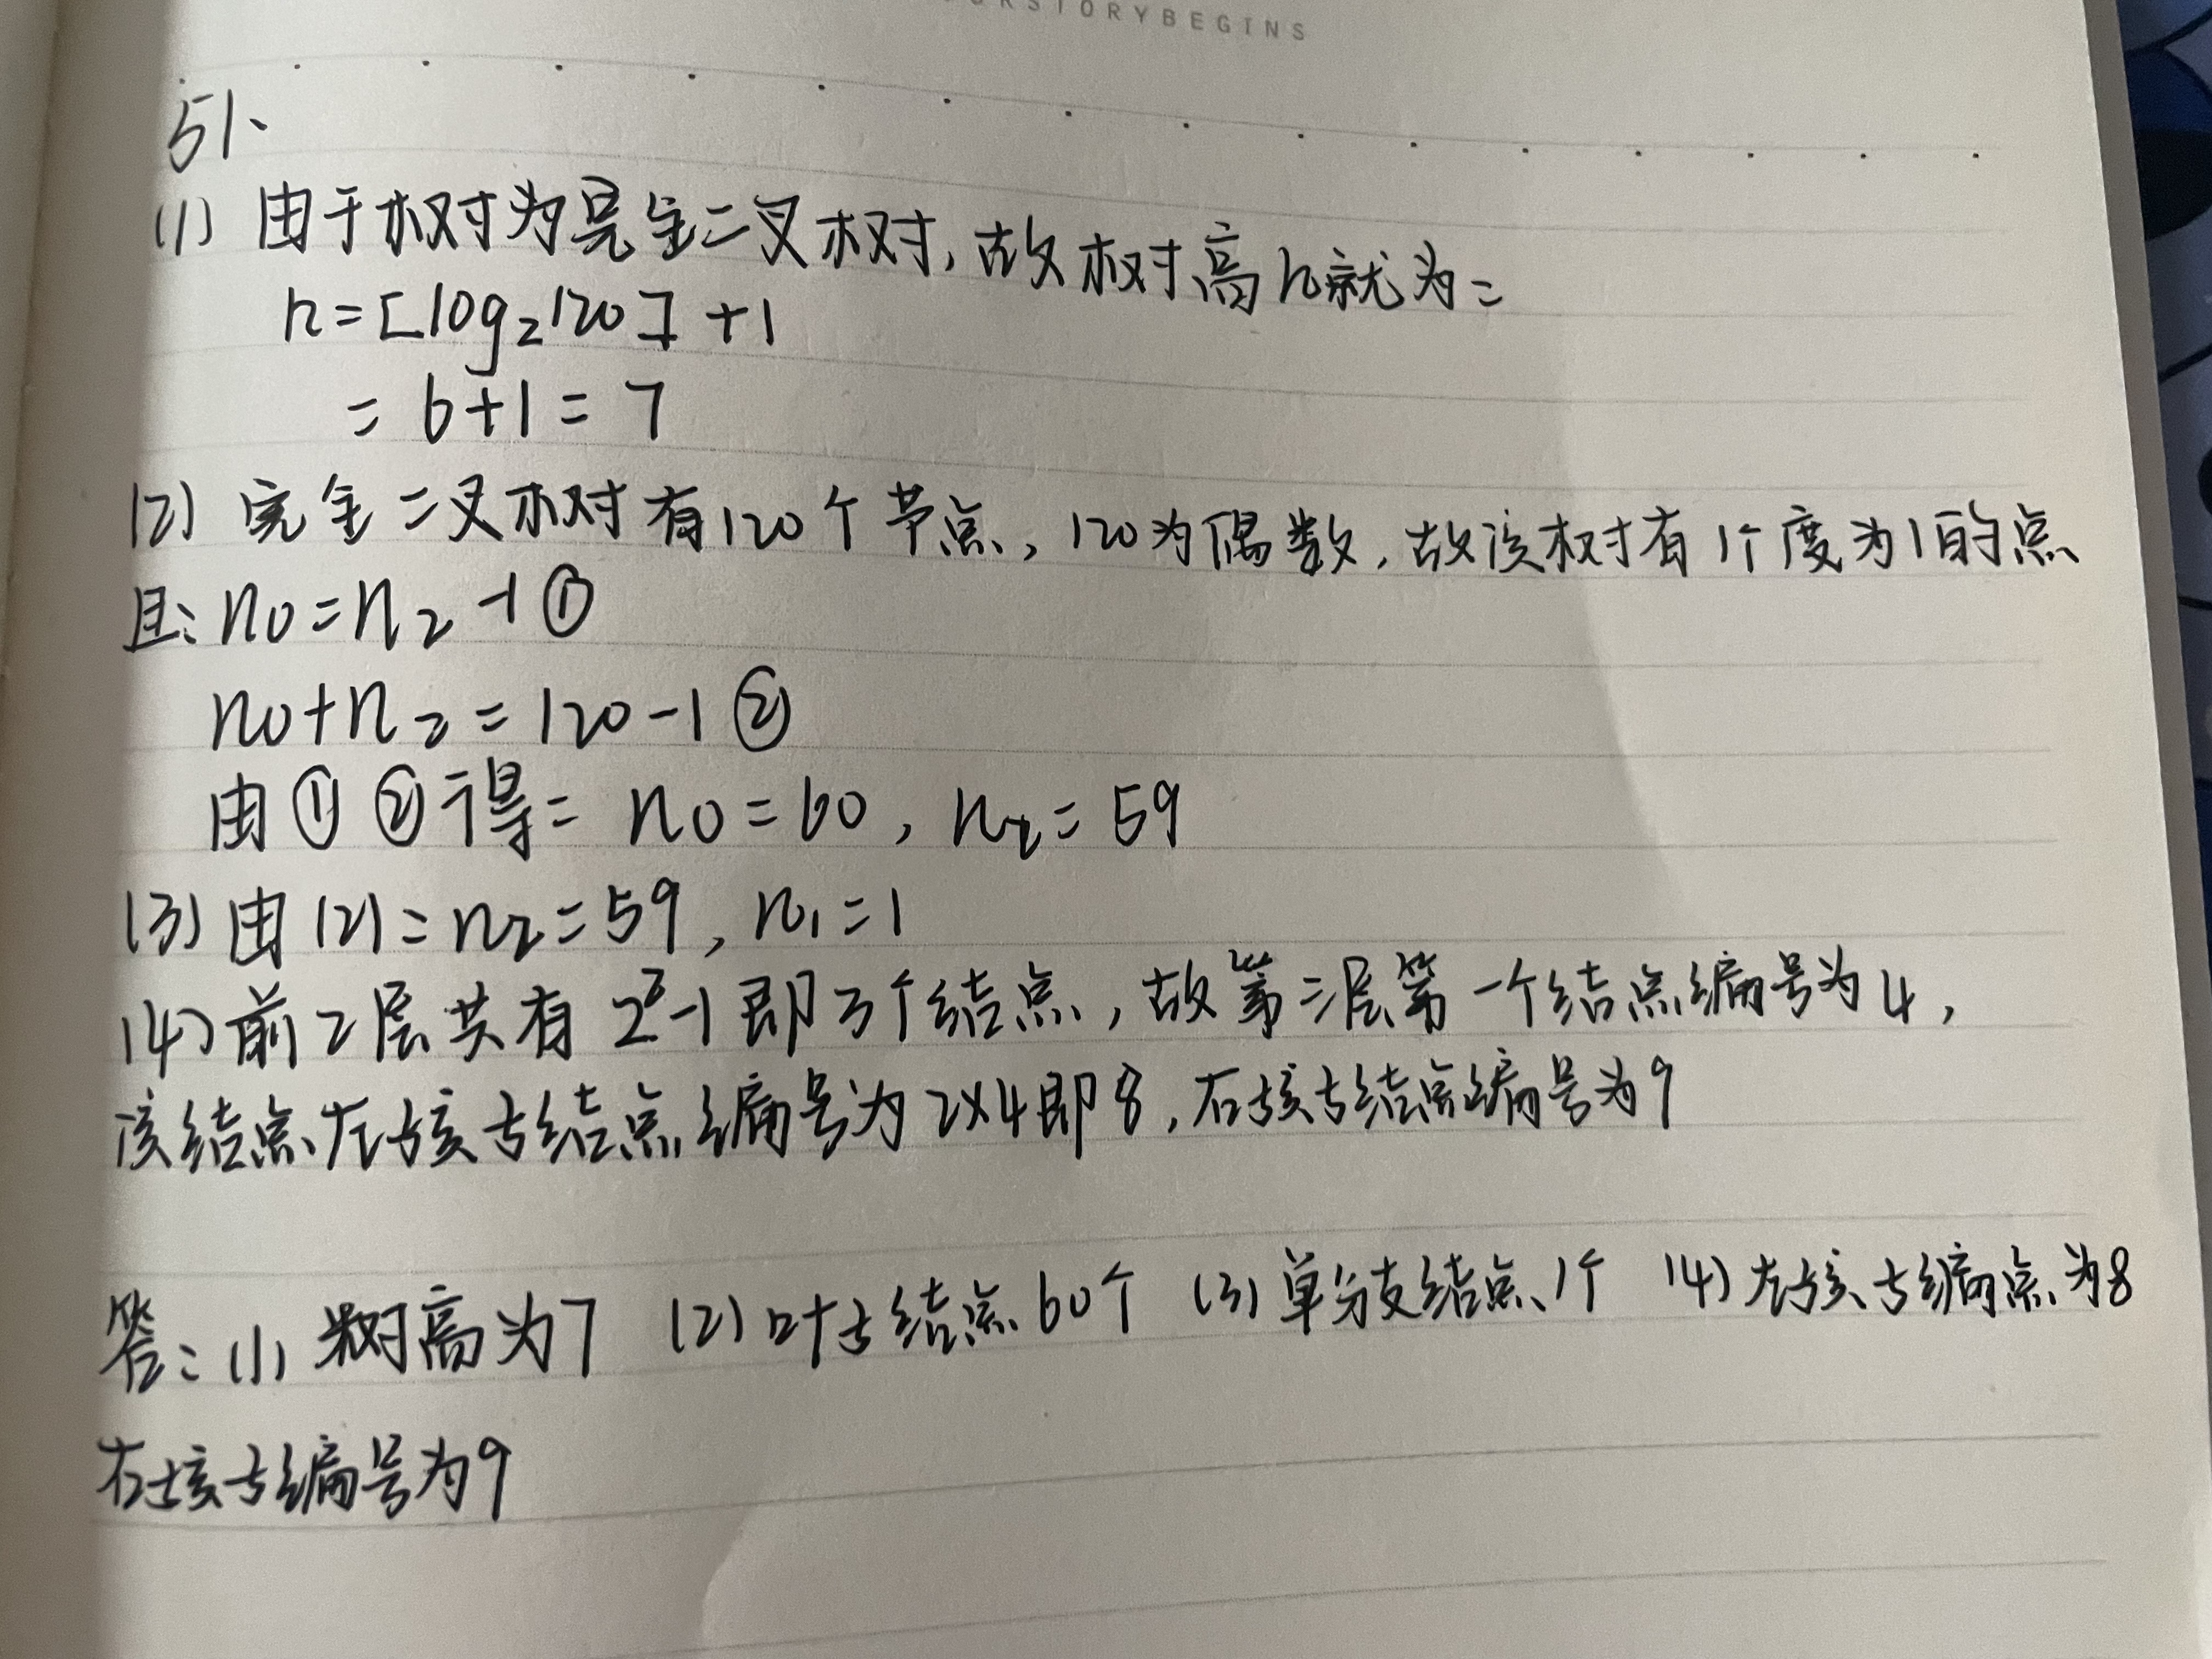 RSTORYBEGINS
51、
(1) 由于树为完全二叉树,故树高h就为:
h=[log₂120]+1
= 6+1=7
(2) 完全二叉树有120个节点,120为偶数,故该树有1个度为1的点
且:n0=n2-1①
n0+n2=120-1②
由①②得: n0=60,n2=59
(3)由(2):n2=59,n1=1
(4)前2层共有2²-1即3个结点,故第三层第一个结点编号为4,
该结点左孩子结点编号为2x4即8,右孩子结点编号为9
答:(1)树高为7 (2)叶子结点60个 (3)单分支结点1个 (4)左孩子编点为8
右孩子编号为9